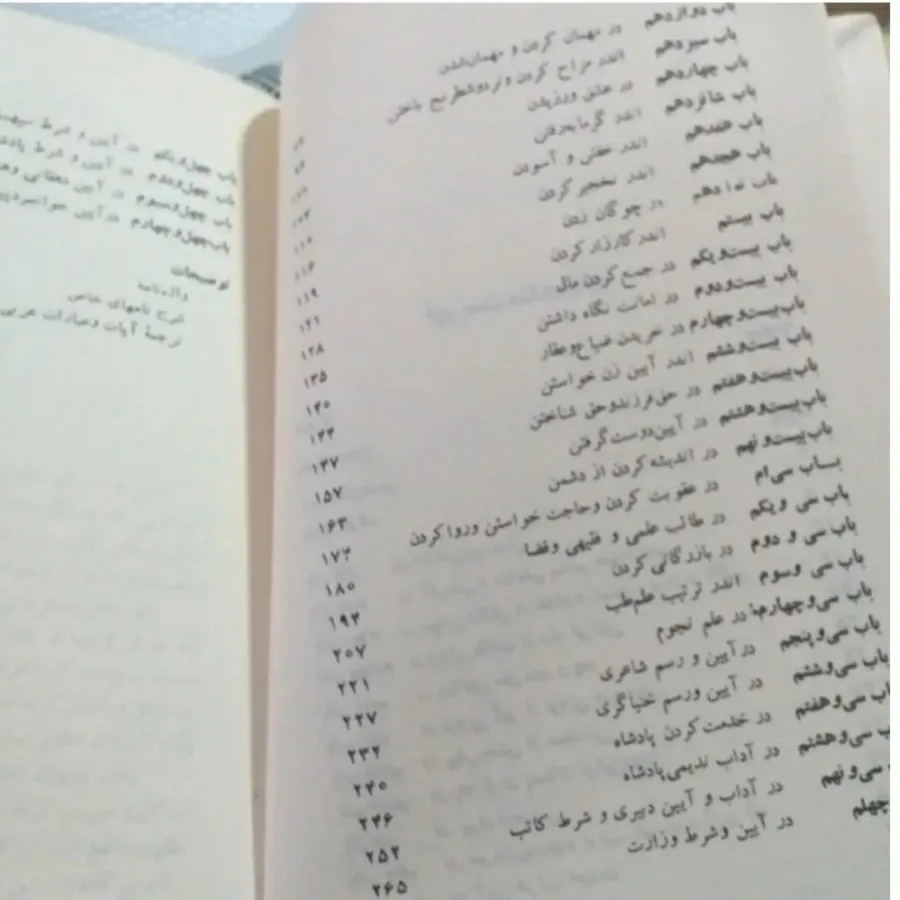 باب دوازدهم در مهمان کردن و مهمان‌شدن
باب سیزدهم اندر مزاح کردن ونردوشطرنج باختن
باب چهاردهم در عشق ورزیدن
باب شانزدهم اندر گرمابه‌رفتن
باب هفدهم اندر خفتن و آسودن
باب هجدهم اندر نخجیر کردن ۱۱۶
باب نوزدهم در چوگان زدن ۱۱۹
باب بیستم اندر کارزار کردن ۱۲۱
باب بیست‌ویکم در جمع کردن مال ۱۲۸
باب بیست‌ودوم در امانت نگاه داشتن ۱۳۵
باب بیست‌وچهارم در خریدن ضیاع‌وعقار ۱۴۰
باب بیست‌وششم اندر آیین زن خواستن
باب بیست‌وهفتم در حق‌فرزندوحق شناختن ۱۴۷
باب بیست‌وهشتم در آیین‌دوست‌گرفتن ۱۵۷
باب بیست‌و نهم در اندیشه‌کردن از دشمن ۱۶۳
باب سی‌ام در عقوبت کردن وحاجت خواستن ورواکردن ۱۷۴
باب سی ویکم در طالب علمی و فقیهی وقضا ۱۸۰
باب سی و دوم در بازرگانی کردن ۱۹۴
باب سی وسوم اندر ترتیب علم‌طب ۲۰۷
باب سی‌وچهارم در علم نجوم ۲۲۱
باب سی‌وپنجم در آیین و رسم شاعری ۲۲۷
باب سی‌وششم در آیین ورسم خنیاگری ۲۳۲
باب سی‌وهفتم در خدمت کردن پادشاه ۲۴۰
ب سی‌وهشتم در آداب ندیمی‌پادشاه ۲۴۶
سی‌و نهم در آداب و آیین دبیری و شرط کاتب ۲۵۲
چهلم در آیین وشرط وزارت ۲۶۵
باب چهل‌ویکم در آیین و شرط
باب چهل‌ودوم در آیین و شرط
باب چهل‌وسوم در آیین دهقانی
باب‌چهل‌وچهارم در آیین
توضیحات
واژه‌نامه
شرح نامهای خاص
ترجمهٔ آیات وعبارات عربی